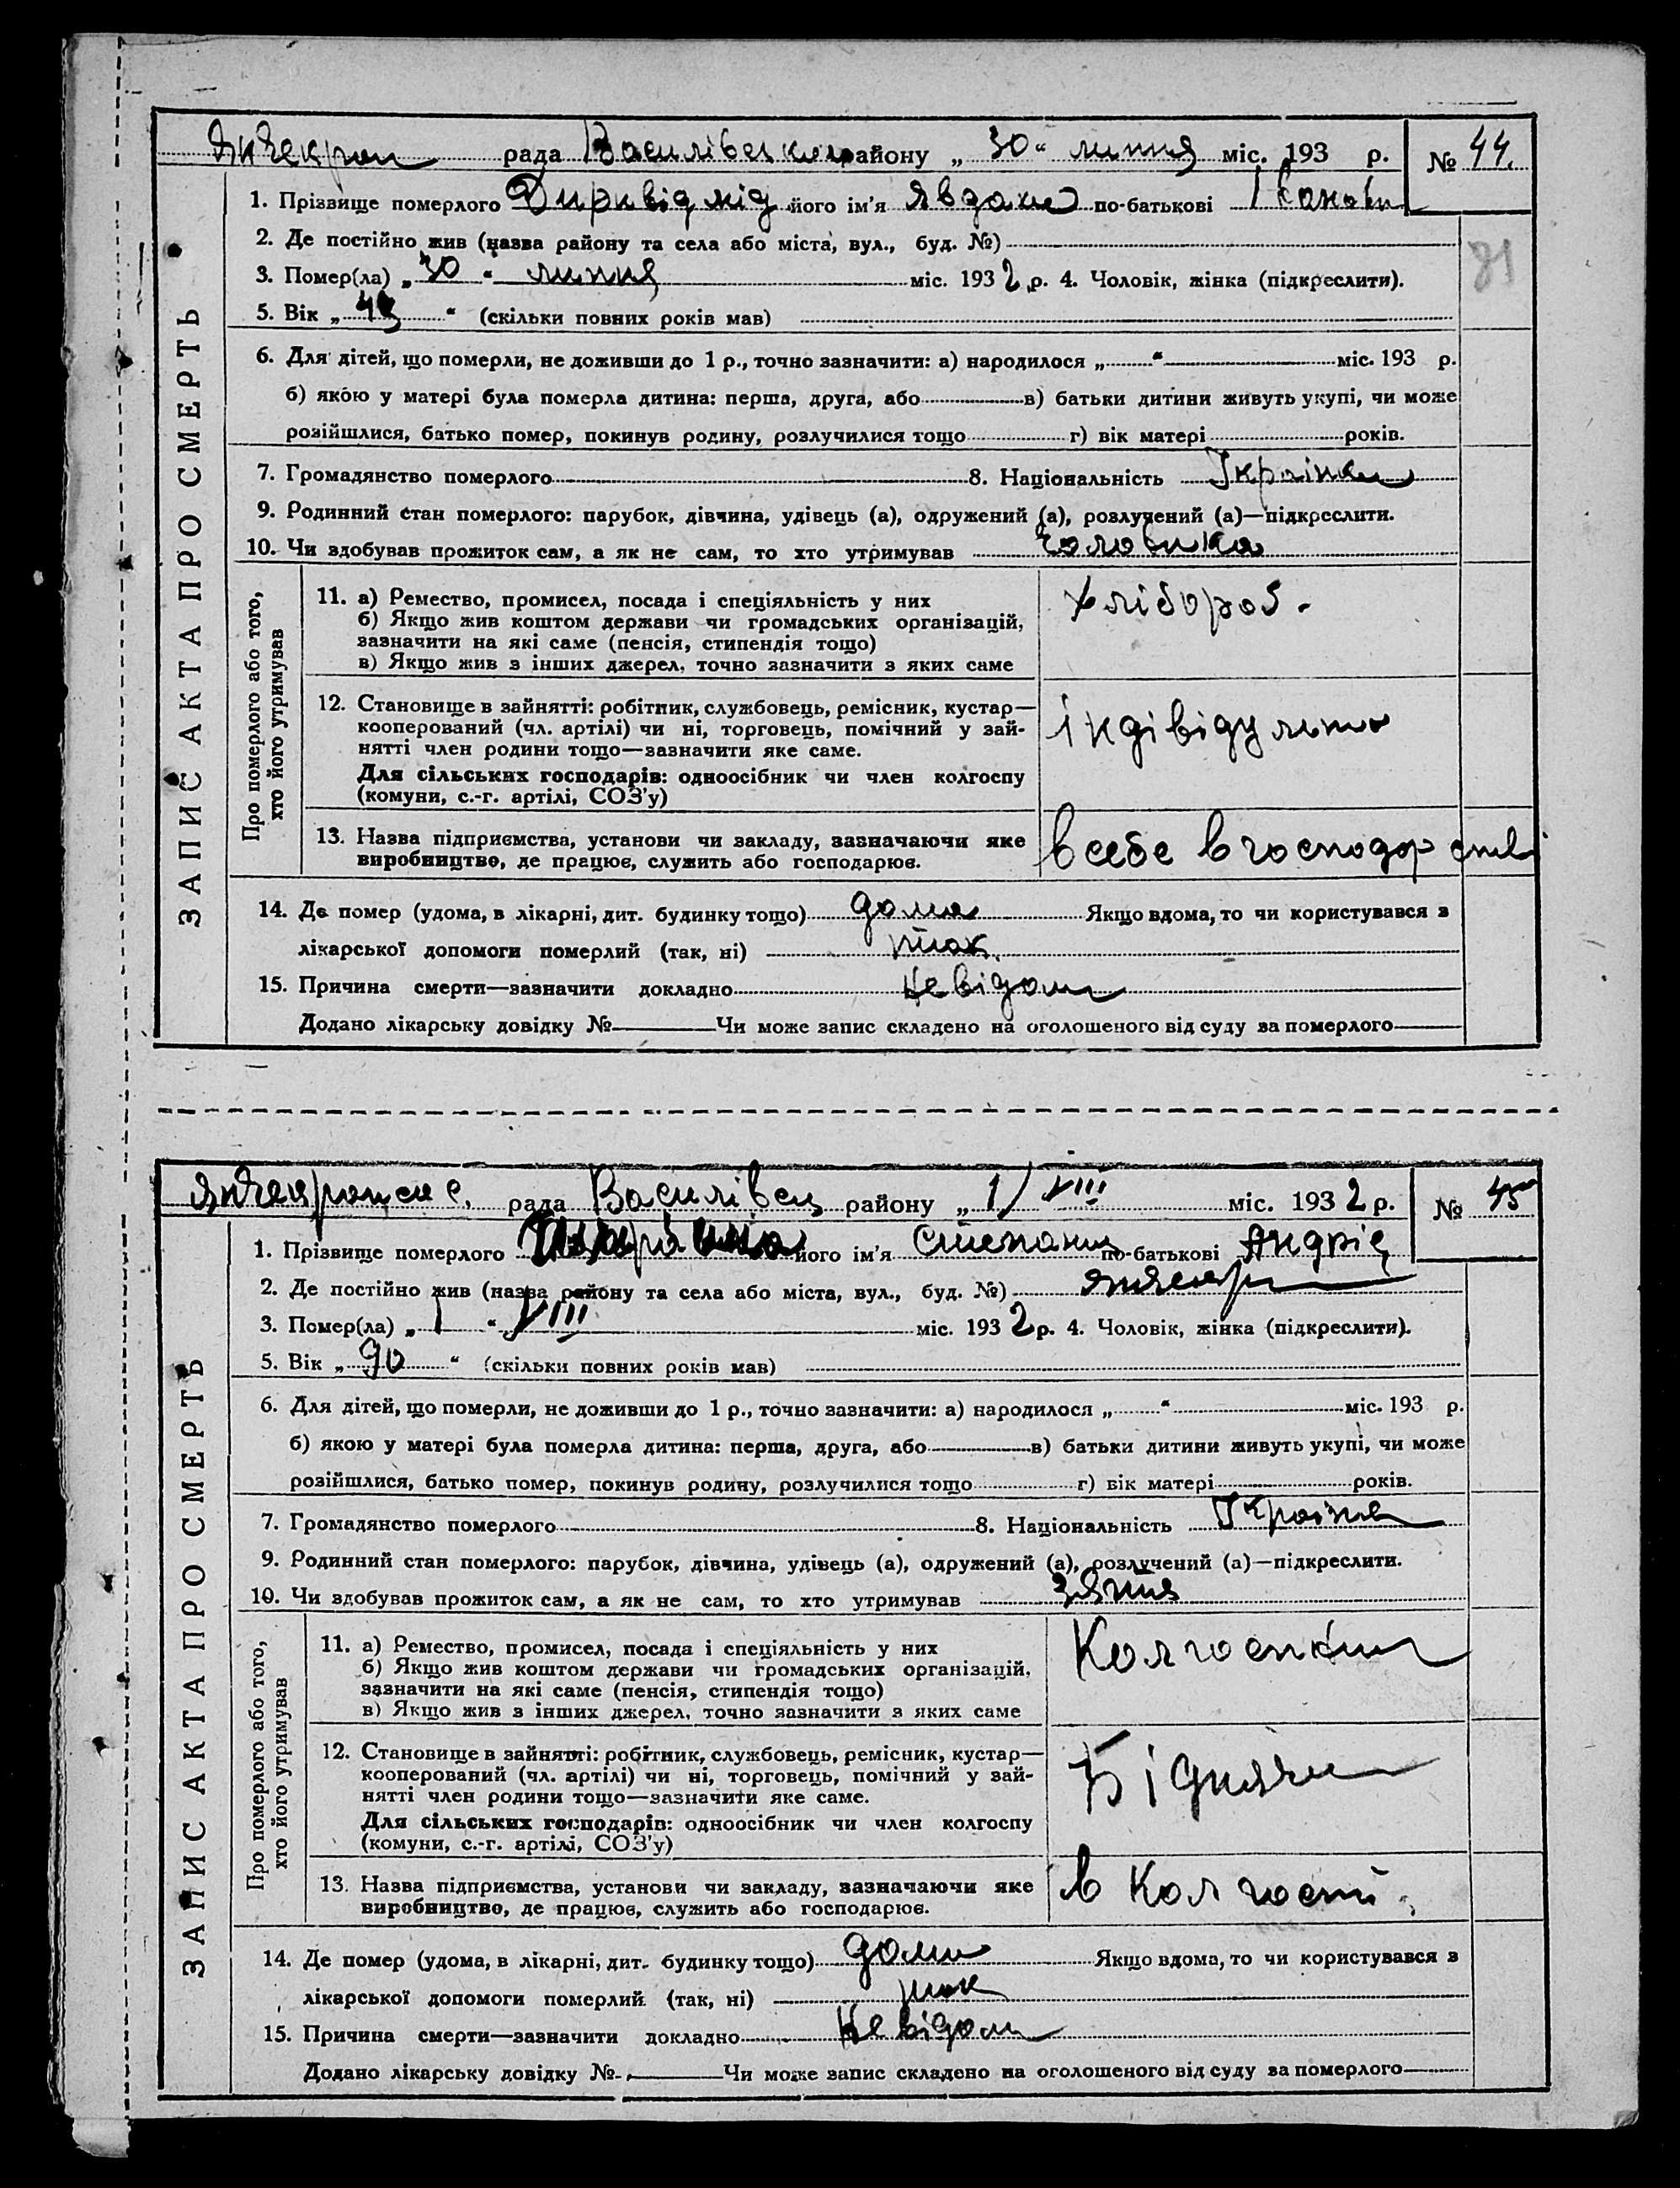 рада Василівського району „ 30 “ липня міс. 193 р. № 44.
1. Прізвище померлого його ім'я Явдоха по-батькові
2. Де постійно жив (назва району та села або міста, вул., буд. №)
3. Помер(ла) „ 30 “ липня міс. 1932 р. 4. Чоловік, жінка (підкреслити).
5. Вік „ “ (скільки повних років мав)
6. Для дітей, що померли, не доживши до 1 р., точно зазначити: а) народилося „ “ міс. 193 р.
б) якою у матері була померла дитина: перша, друга, або в) батьки дитини живуть укупі, чи може
розійшлися, батько помер, покинув родину, розлучилися тощо г) вік матері років.
7. Громадянство померлого 8. Національність Українка
9. Родинний стан померлого: парубок, дівчина, удівець (а), одружений (а), розлучений (а)—підкреслити.
10. Чи здобував прожиток сам, а як не сам, то хто утримував чоловіка
ЗАПИС АКТА ПРО СМЕРТЬ
Про померлого або того,
хто його утримував
11. а) Ремество, промисел, посада і спеціяльність у них
б) Якщо жив коштом держави чи громадських організацій,
зазначити на які саме (пенсія, стипендія тощо)
в) Якщо жив з інших джерел, точно зазначити з яких саме
хлібороб.
12. Становище в зайнятті: робітник, службовець, ремісник, кустар—
кооперований (чл. артілі) чи ні, торговець, помічний у зай-
нятті член родини тощо—зазначити яке саме.
Для сільських господарів: одноосібник чи член колгоспу
(комуни, с.-г. артілі, СОЗ'у)
13. Назва підприємства, установи чи закладу, зазначаючи яке
виробництво, де працює, служить або господарює.
в себе в господарстві
14. Де помер (удома, в лікарні, дит. будинку тощо) дома Якщо вдома, то чи користувався з
лікарської допомоги померлий (так, ні) так.
15. Причина смерти—зазначити докладно невідома
Додано лікарську довідку № Чи може запис складено на оголошеного від суду за померлого
рада Василівськ району „ 1/VIII міс. 1932 р. № 45
1. Прізвище померлого його ім'я по-батькові Андрів
2. Де постійно жив (назва району та села або міста, вул., буд. №)
3. Помер(ла) „ 1 “ VIII міс. 1932 р. 4. Чоловік, жінка (підкреслити).
5. Вік „ 90 “ (скільки повних років мав)
6. Для дітей, що померли, не доживши до 1 р., точно зазначити: а) народилося „ “ міс. 193 р.
б) якою у матері була померла дитина: перша, друга, або в) батьки дитини живуть укупі, чи може
розійшлися, батько помер, покинув родину, розлучилися тощо г) вік матері років.
7. Громадянство померлого 8. Національність
9. Родинний стан померлого: парубок, дівчина, удівець (а), одружений (а), розлучений (а)—підкреслити.
10. Чи здобував прожиток сам, а як не сам, то хто утримував зятя
ЗАПИС АКТА ПРО СМЕРТЬ
Про померлого або того,
хто його утримував
11. а) Ремество, промисел, посада і спеціяльність у них
б) Якщо жив коштом держави чи громадських організацій,
зазначити на які саме (пенсія, стипендія тощо)
в) Якщо жив з інших джерел, точно зазначити з яких саме
12. Становище в зайнятті: робітник, службовець, ремісник, кустар—
кооперований (чл. артілі) чи ні, торговець, помічний у зай-
нятті член родини тощо—зазначити яке саме.
Для сільських господарів: одноосібник чи член колгоспу
(комуни, с.-г. артілі, СОЗ'у)
13. Назва підприємства, установи чи закладу, зазначаючи яке
виробництво, де працює, служить або господарює.
в Колгоспі
14. Де помер (удома, в лікарні, дит. будинку тощо) дома Якщо вдома, то чи користувався з
лікарської допомоги померлий (так, ні) так
15. Причина смерти—зазначити докладно невідома
Додано лікарську довідку № Чи може запис складено на оголошеного від суду за померлого